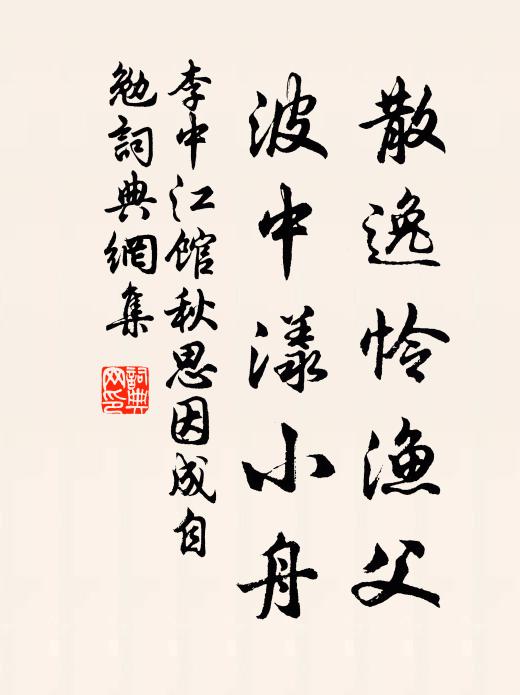 散逸怜渔父
波中漾小舟
李中江馆秋思因成自
勉詞典網集
詞典
网印